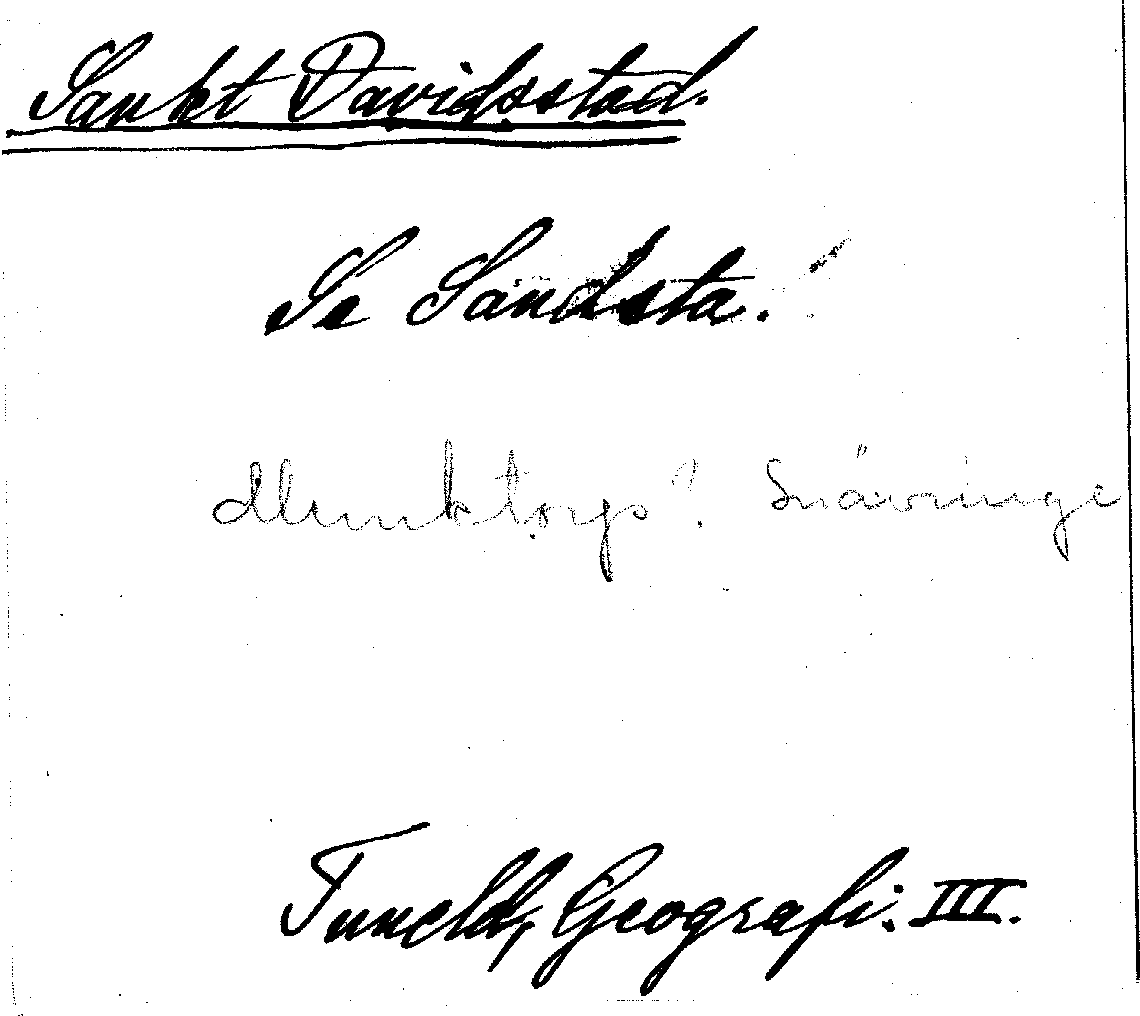 Sankt Davidsstad.
Se Sandsta.
Munktorps? Snävringe
Tuneld, Geografi. III.